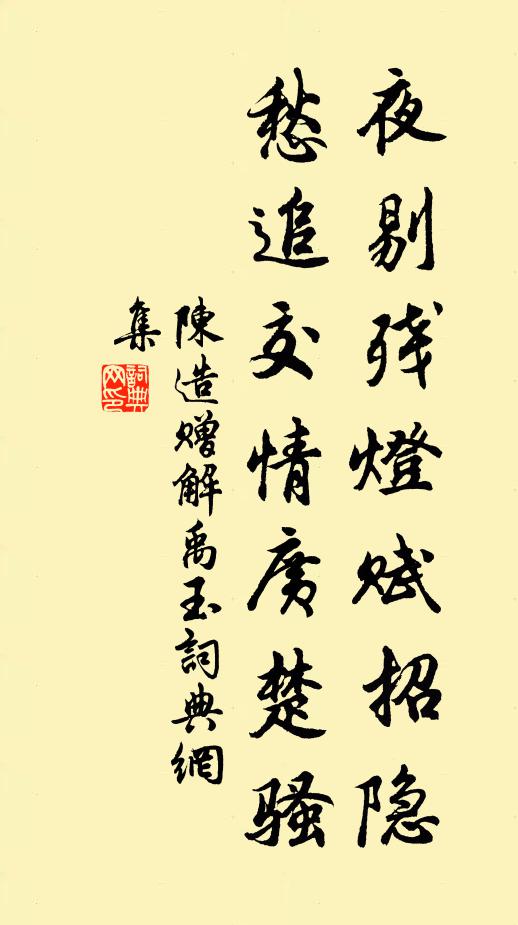 夜剔残燈赋招隐
愁追交情廣楚骚
陳造赠解禹玉詞典網
集
詞典网印